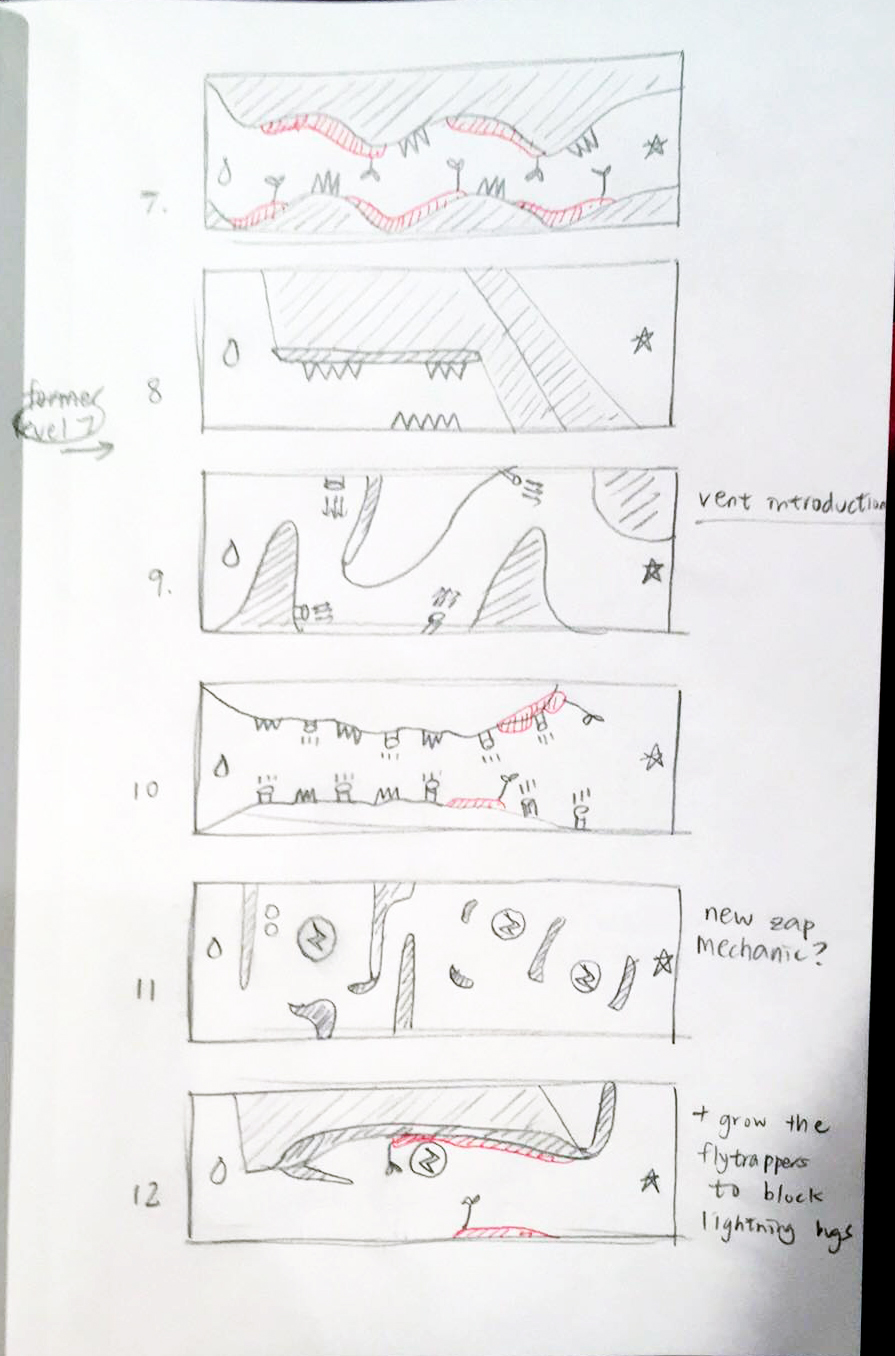 7.
8
former
level 7
9.
vent introduction
10
11
new zap
mechanic?
12
+ grow the
flytrappers
to block
lightning bugs